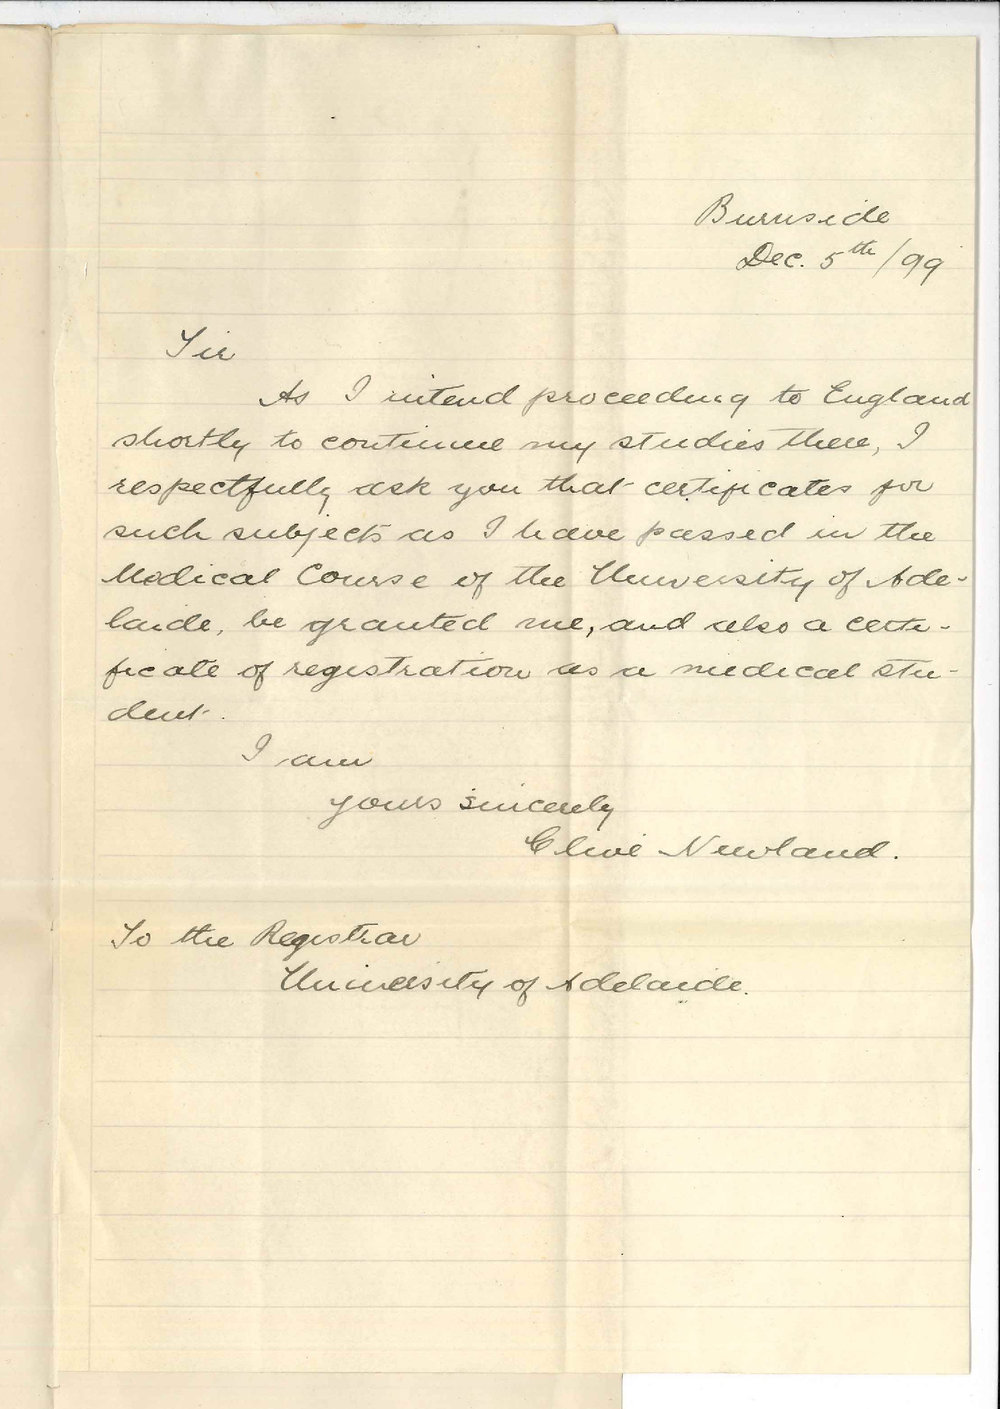 Burnside
Dec. 5th/99
Sir
As I intend proceeding to England
shortly to continue my studies there, I
respectfully ask you that certificates for
such subjects as I have passed in the
Medical Course of the University of Ade-
laide, be granted me, and also a certi-
ficate of registration as a medical stu-
dent.
I am
yours sincerely
Clive Newland.
To the Registrar
University of Adelaide.